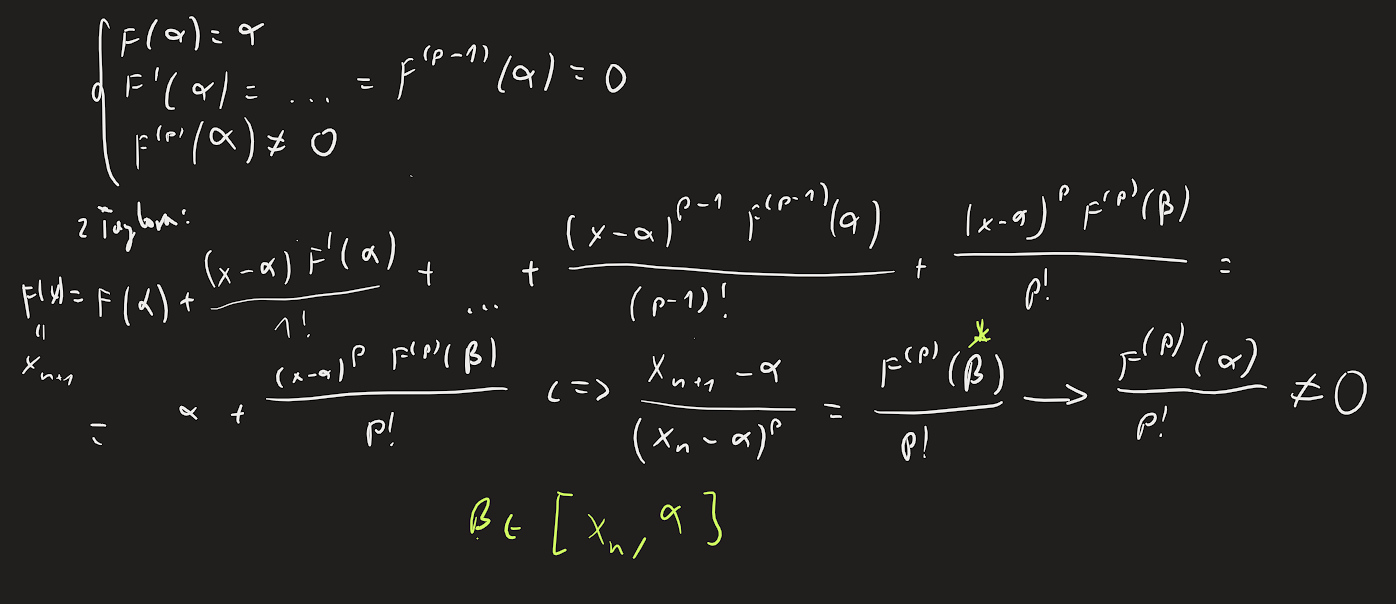 F(α) = α
F'(α) = ... = F^(p-1)(α) = 0
F^(p)(α) ≠ 0
z Taylora:
F(x) = F(α) + (x-α) F'(α) / 1! + ... + (x-α)^(p-1) F^(p-1)(α) / (p-1)! + (x-α)^p F^(p)(β) / p! =
= α + (x-α)^p F^(p)(β) / p! <=> (x_{n+1} - α) / (x_n - α)^p = F^(p)(β) / p! → F^(p)(α) / p! ≠ 0
=
x_{n+1}
*
β ∈ [x_n, α]